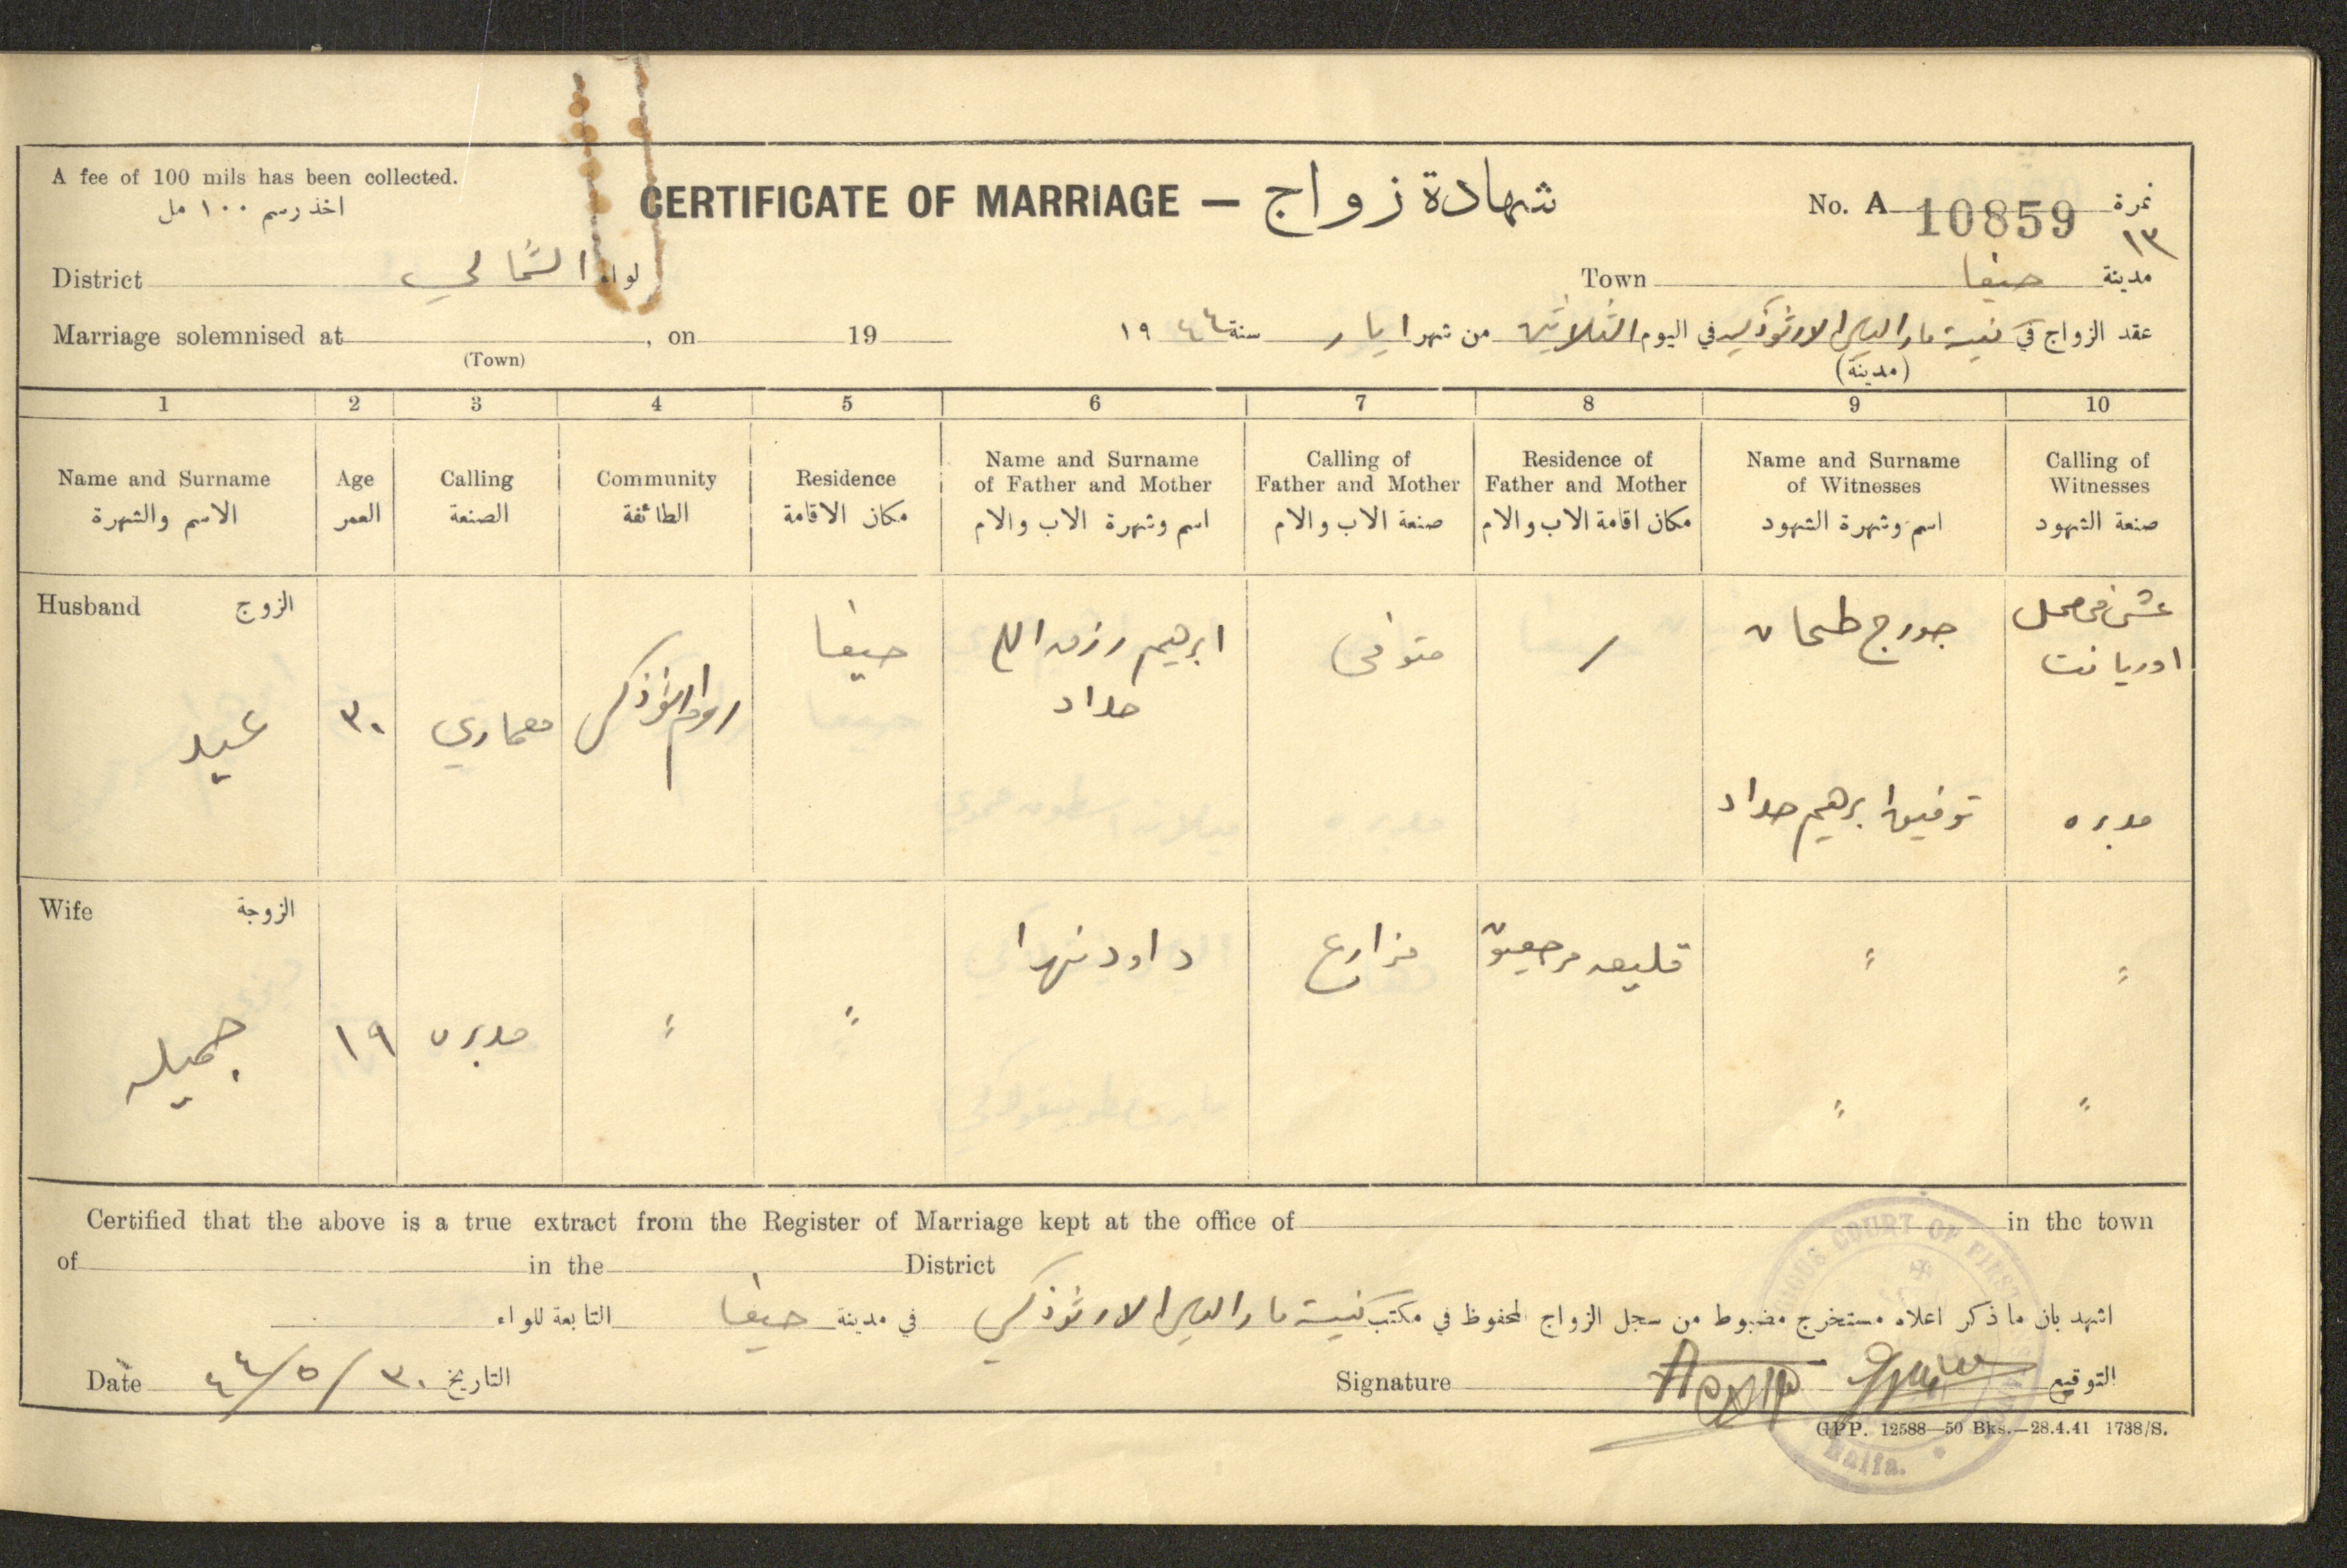 A fee of 100 mils has been collected.
اخذ رسم ١٠٠ مل
CERTIFICATE OF MARRIAGE — شهادة زواج
No. A 10859 نمرة
١٣
District الشمالي لواء
Town حيفا مدينة
Marriage solemnised at , on 19
(Town)
عقد الزواج في كنيسة مار الياس الارثوذكسية في اليوم الثلاثين من شهر ايار سنة ١٩٤٤
(مدينة)
1 2 3 4 5 6 7 8 9 10
Name and Surname
الاسم والشهرة
Age
العمر
Calling
الصنعة
Community
الطائفة
Residence
مكان الاقامة
Name and Surname
of Father and Mother
اسم وشهرة الاب والام
Calling of
Father and Mother
صنعة الاب والام
Residence of
Father and Mother
مكان اقامة الاب والام
Name and Surname
of Witnesses
اسم وشهرة الشهود
Calling of
Witnesses
صنعة الشهود
Husband الزوج
عيد
٣٠
معماري
روم ارثوذكس
حيفا
ابرهيم رزق الله
حداد
متوفى
/
جورج طحان
محل
اوريانت
توفيق ابرهيم حداد
مدبره
Wife الزوجة
جميله
١٩
مدبره
"
"
داود نهرا
مزارع
قليعه مرجعيون
"
"
"
"
Certified that the above is a true extract from the Register of Marriage kept at the office of in the town
of in the District
اشهد بان ما ذكر اعلاه مستخرج مضبوط من سجل الزواج المحفوظ في مكتب كنيسة مار الياس الارثوذكسي في مدينة حيفا التابعة للواء
Date ٣٠/٥/٤٤ التاريخ
Signature التوقيع
COURT OF FIRST
Haifa.
GPP. 12588—50 Bks.—28.4.41 1738/S.